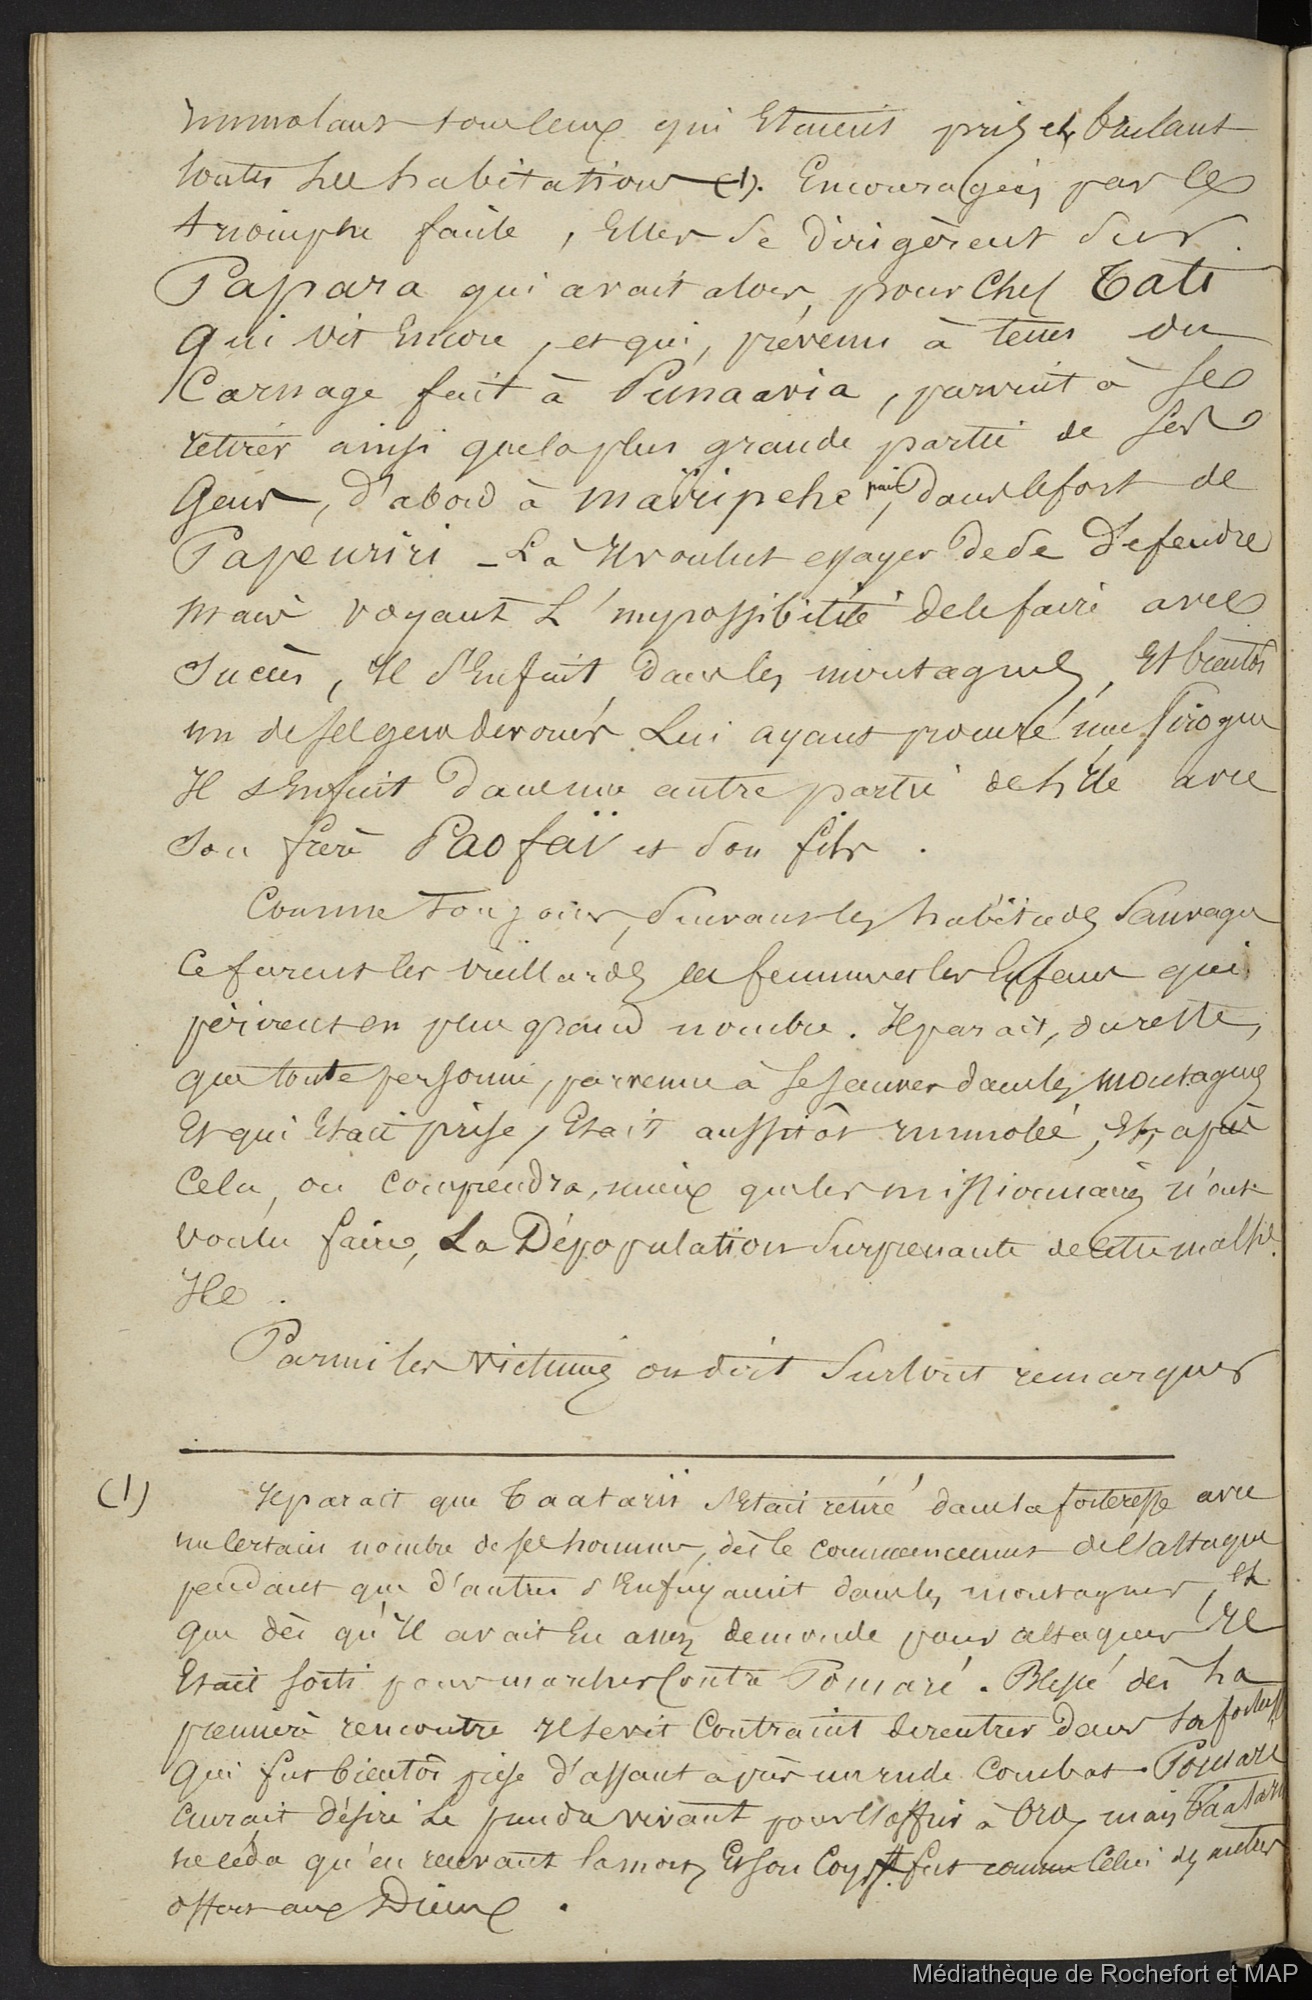 immolant tous ceux qui Etaient pris et brulant
toutes les habitations (1). Encouragées par ce
triomphe facile, Elles se dirigèrent sur
Papara qui avait alors, pour Chef Tati
qui vit Encore, et qui, prévenu à tems du
Carnage fait à Punaavia, parvint à se
retirer ainsi que la plus grande partie de ses
Gens, d'abord à Mairipehe, puis dans le fort de
Papeuriri - Là Il voulut essayer de se défendre
mais voyant L'impossibilité de le faire avec
Succès, Il S'Enfuit dans les montagnes, Et bientôt
un de ses gens devoués Lui ayant procuré une Pirogue
Il s'Enfuit dans une autre partie de l'Ile avec
Son frère Paofaï et Son fils.
Comme toujours, Suivant les habitudes Sauvages
Ce furent les vieillards les femmes et les Enfans qui
périrent en plus grand nombre. Il parait, du reste,
que toute personne, parvenue à se sauver dans les montagnes
Et qui Etait prise, Etait aussitôt Immolée, Et, après
Cela, on Comprendra, mieux que les missionnaires n'ont
voulu faire, La Dépopulation Surprenante de Cette malhe.
Ile.
Parmi les victimes on doit Surtout remarquer
(1) Il parait que Taatarii s'Etait retiré dans la forteresse avec
un Certain nombre de ses hommes, dès le commencement de l'attaque
pendant que d'autres s'Enfuyaient dans les montagnes, et
que dès qu'Il avait Eu assez de monde pour attaquer Il
Etait sorti pour marcher Contre Pomaré. Blessé dès la
première rencontre Il se vit Contraint de rentrer dans la forteresse
qui fut bientôt prise d'assaut après un rude Combat. Pomare
aurait désiré Le prendre vivant pour l'offrir à Oro, mais Taatarii
ne céda qu'en recevant la mort, Et son Corps fut comme Celui des autres
offert aux Dieux.
Médiathèque de Rochefort et MAP